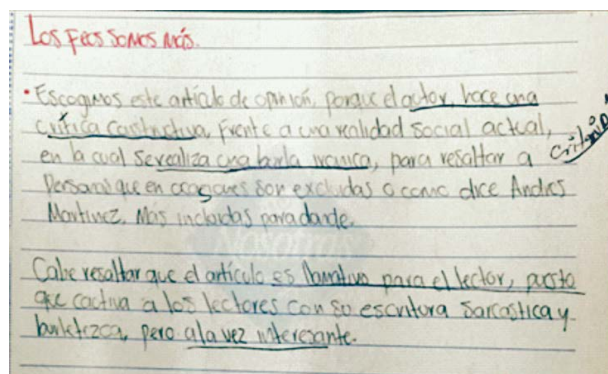 Los Feos Somos más.
• Escogimos este artículo de opinión, porque el autor hace una
crítica constructiva, frente a una realidad social actual,
en la cual se realiza una burla ironica, para resaltar a
Personas que en ocaciones son excluidas o como dice Andres
Martinez. Mas incluidas para
Cabe resaltar que el artículo es llamativo para el lector, puesto
que cautiva a los lectores con su escritura sarcastica y
burletezca, pero a la vez interesante.